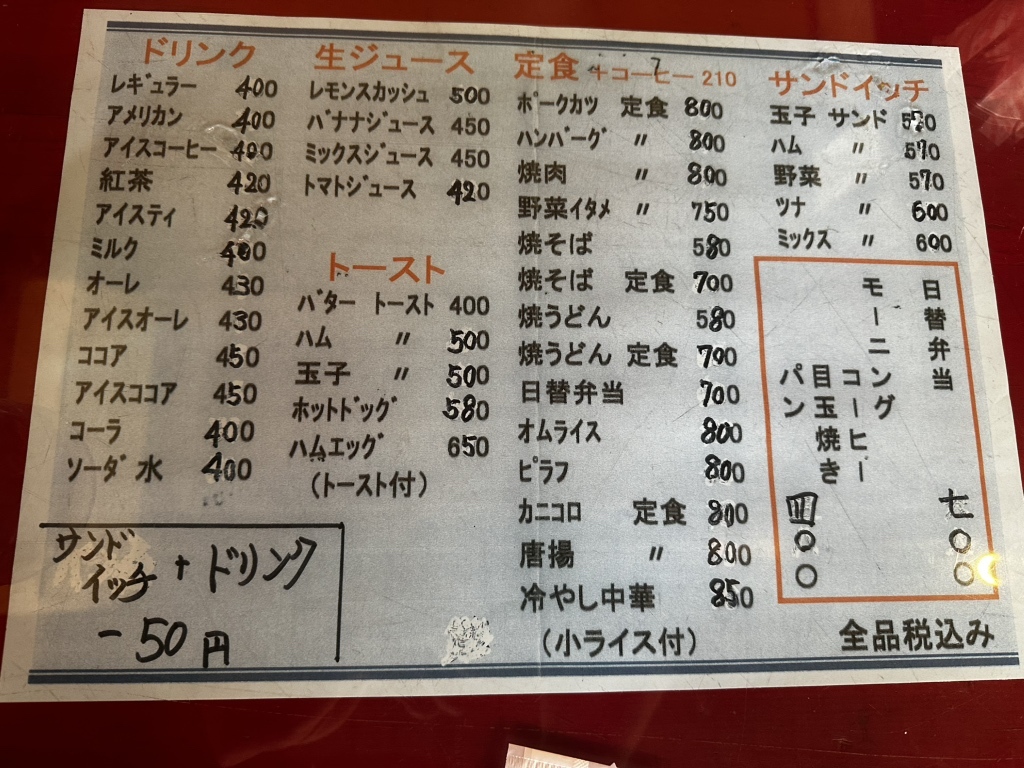 ドリンク
レギュラー 400
アメリカン 400
アイスコーヒー 400
紅茶 420
アイスティ 420
ミルク 400
オーレ 430
アイスオーレ 430
ココア 450
アイスココア 450
コーラ 400
ソーダ水 400
サンド
イッチ + ドリンク
-50円
生ジュース
レモンスカッシュ 500
バナナジュース 450
ミックスジュース 450
トマトジュース 420
トースト
バター トースト 400
ハム 〃 500
玉子 〃 500
ホットドッグ 580
ハムエッグ 650
(トースト付)
定食 +コーヒー 210
ポークカツ 定食 800
ハンバーグ 〃 800
焼肉 〃 800
野菜イタメ 〃 750
焼そば 580
焼そば 定食 700
焼うどん 580
焼うどん 定食 700
日替弁当 700
オムライス 800
ピラフ 800
カニコロ 定食 800
唐揚 〃 800
冷やし中華 850
(小ライス付)
サンドイッチ
玉子 サンド 570
ハム 〃 570
野菜 〃 570
ツナ 〃 600
ミックス 〃 600
日替弁当 七〇〇
モーニング
コーヒー
目玉焼き
パン 四〇〇
全品税込み